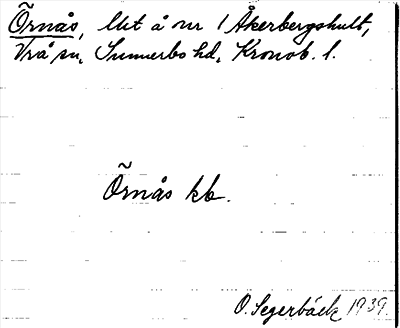 Örnås, lht å nr 1 Åkerbergshult,
Vrå sn, Sunnerbo hd, Kronob. l.
Örnås kb.
O. Segerbäck 1939.